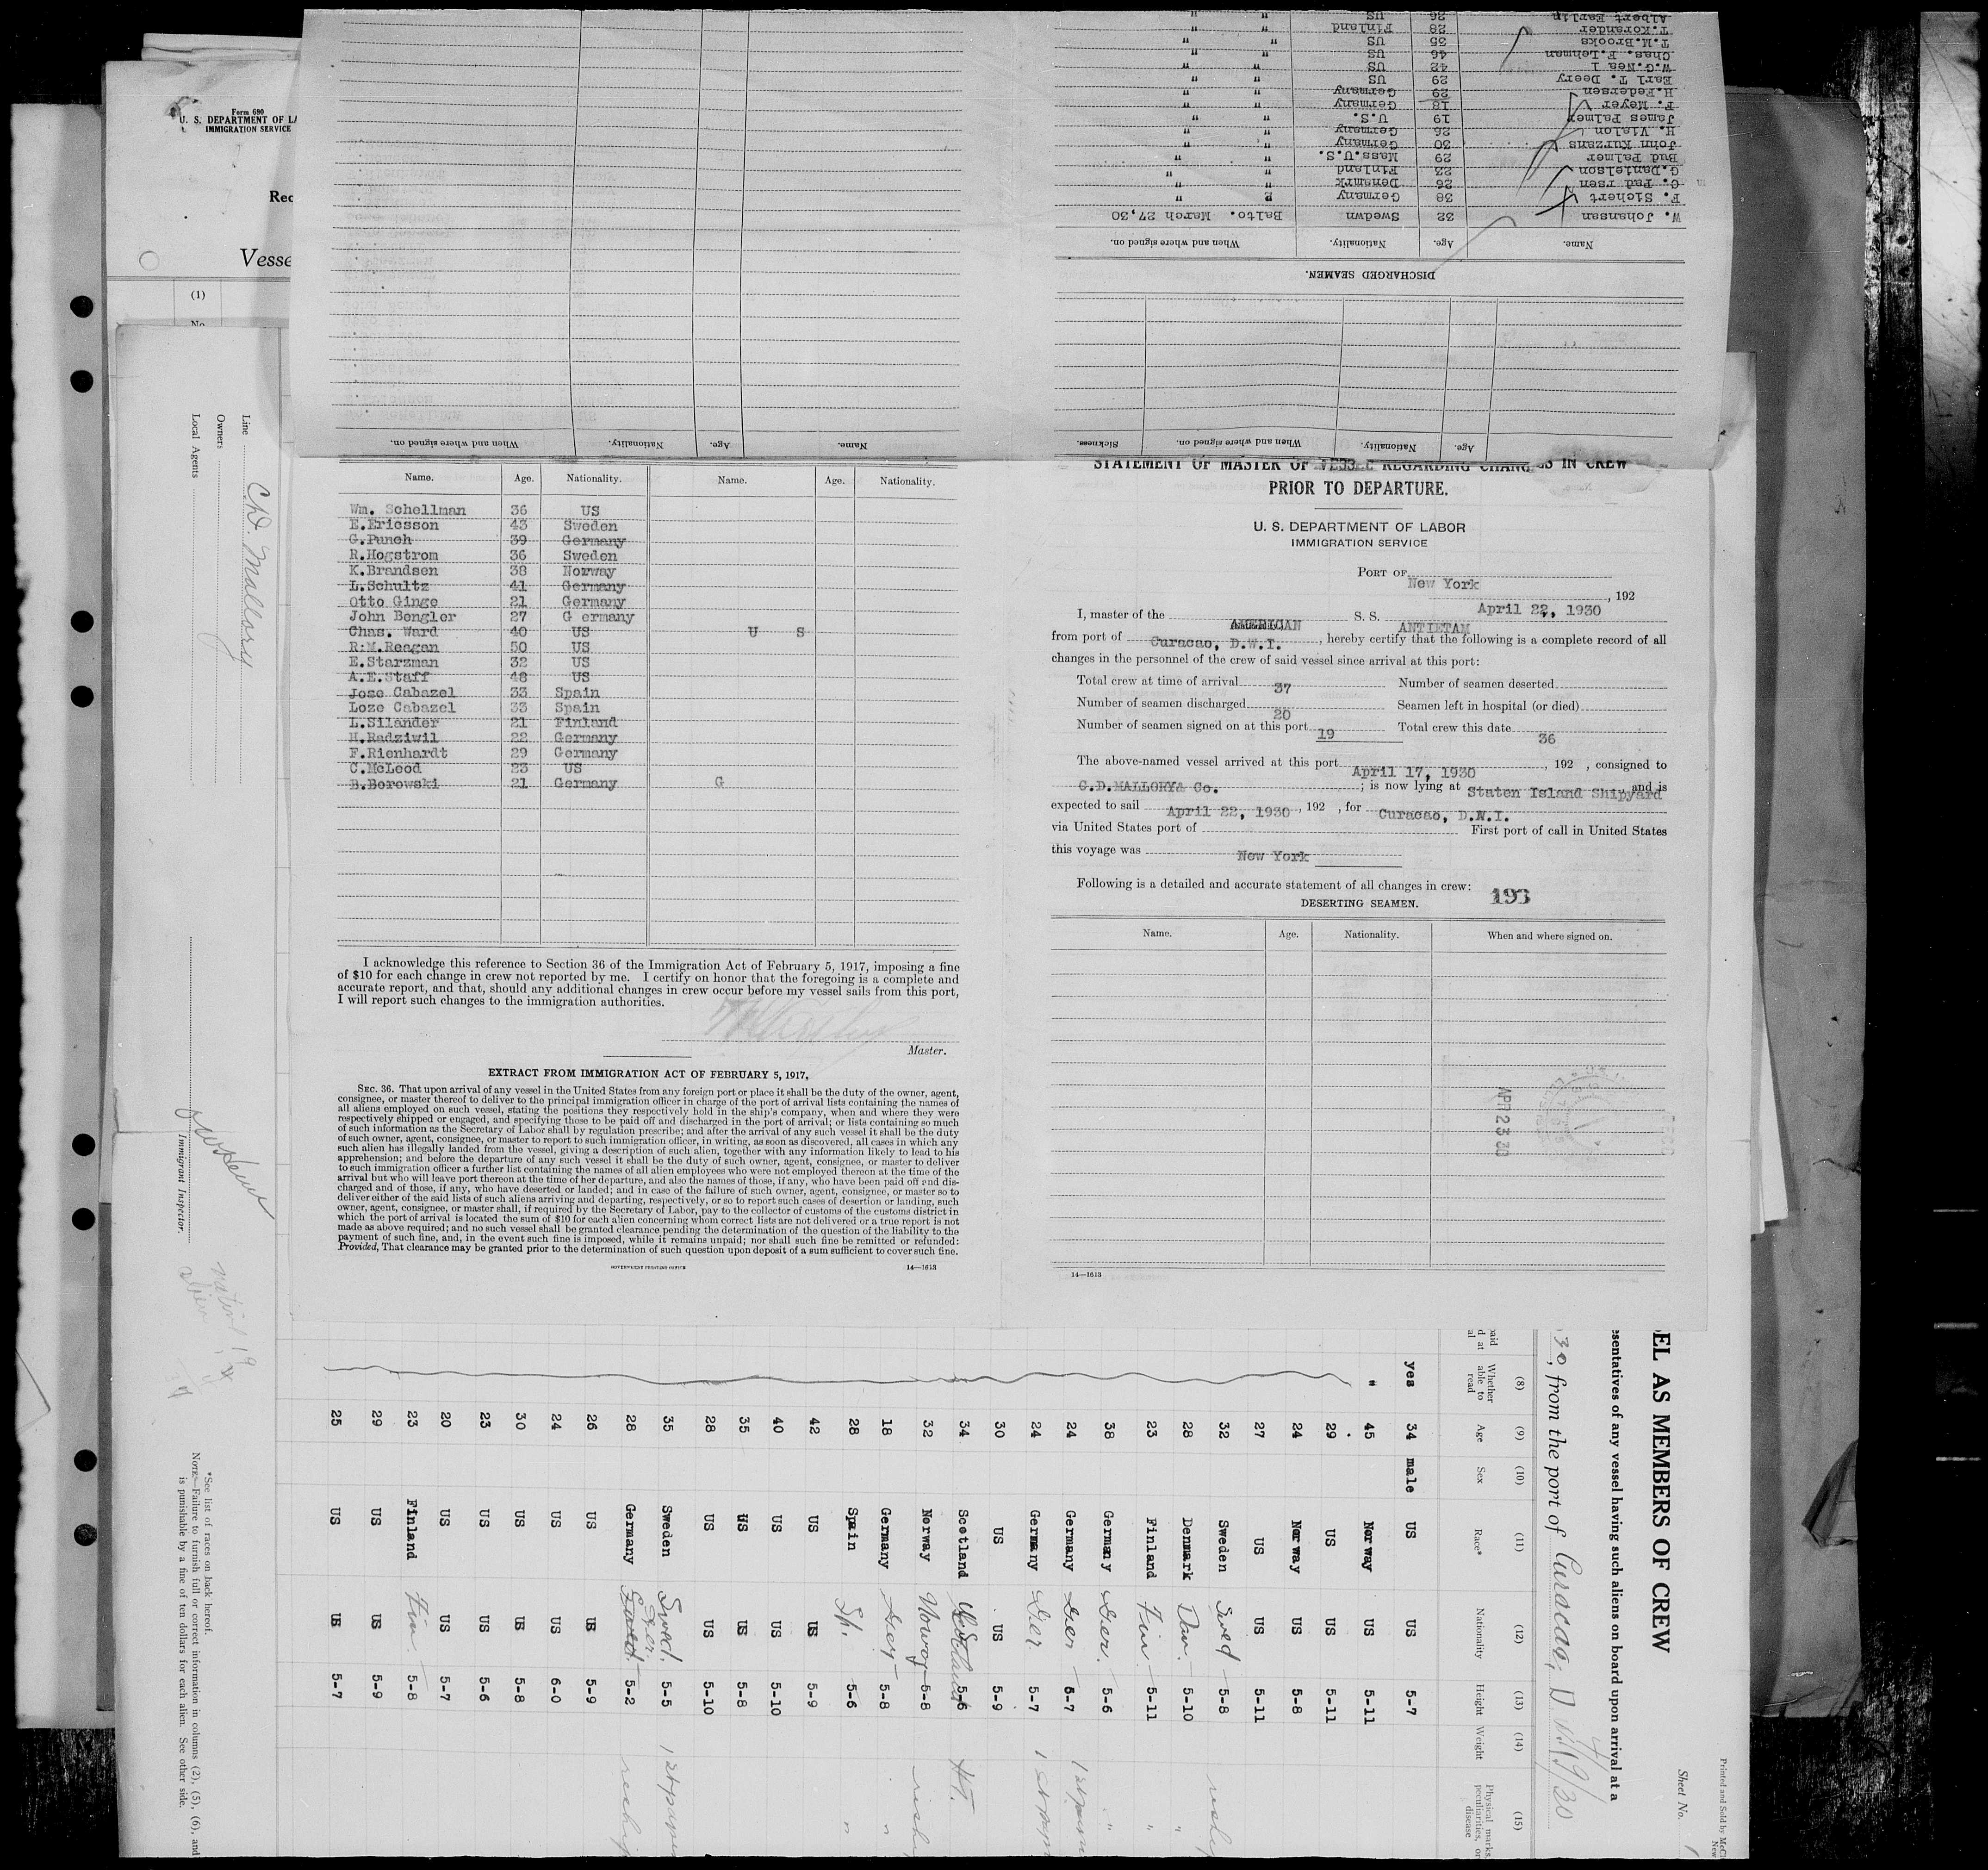 Form 690
U. S. DEPARTMENT OF LA
IMMIGRATION SERVICE
Rec
Vesse
(1)
No
Line C.D. Mallory
Owners
Local Agents
Immigrant Inspector.
*See list of races on back hereof.
NOTE—Failure to furnish full or correct information in columns (2), (5), (6), and
is punishable by a fine of ten dollars for each alien. See other side.
Albert Earlin 26 US " "
T.Korander 28 Finland " "
T.M.Brooks 35 US " "
Chas. F.Lehman 46 US " "
W.G.Nea l 42 US " "
Earl T. Deery 29 US
H.Federsen 29 Germany " "
F. Meyer 18 Germany " "
James Palmer 19 U.S. " "
H. Vialon 26 Germany " "
John Kurzans 30 Germany " "
Bud Palmer 29 Mass.U.S. " "
G.Danielson 23 Finland " "
C. Pad rsen 26 Denamrk " "
F. Sichert 38 Germany "
W. Johansan 32 Swedwn Balto. March 27,30
Name. Age. Nationality. When and where signed on.
DISCHARGED SEAMEN.
Name. Age. Nationality. When and where signed on.
Age. Nationality. When and where signed on. Sickness.
Name. Age. Nationality. Name. Age. Nationality.
Wm. Schellman 36 US
E.Ericsson 43 Sweden
G.Punch 39 Germany
R.Hogstrom 36 Sweden
K.Brandsen 38 Norway
L.Schultz 41 Germany
Otto Ginge 21 Germany
John Bengler 27 G ermany
Chas. Ward 40 US U S
R.M.Reagan 50 US
E.Starzman 32 US
A.E.Staff 48 US
Jose Cabazel 33 Spain
Loze Cabazel 33 Spain
L.Silander 21 Finland
H.Radziwil 22 Germany
F.Rienhardt 29 Germany
C.McLeod 23 US
B.Borowski 21 Germany G
I acknowledge this reference to Section 36 of the Immigration Act of February 5, 1917, imposing a fine
of $10 for each change in crew not reported by me. I certify on honor that the foregoing is a complete and
accurate report, and that, should any additional changes in crew occur before my vessel sails from this port,
I will report such changes to the immigration authorities.
Master.
EXTRACT FROM IMMIGRATION ACT OF FEBRUARY 5, 1917.
SEC. 36. That upon arrival of any vessel in the United States from any foreign port or place it shall be the duty of the owner, agent,
consignee, or master thereof to deliver to the principal immigration officer in charge of the port of arrival lists containing the names of
all aliens employed on such vessel, stating the positions they respectively hold in the ship's company, when and where they were
respectively shipped or engaged, and specifying those to be paid off and discharged in the port of arrival; or lists containing so much
of such information as the Secretary of Labor shall by regulation prescribe; and after the arrival of any such vessel it shall be the duty
of such owner, agent, consignee, or master to report to such immigration officer, in writing, as soon as discovered, all cases in which any
such alien has illegally landed from the vessel, giving a description of such alien, together with any information likely to lead to his
apprehension; and before the departure of any such vessel it shall be the duty of such owner, agent, consignee, or master to deliver
to such immigration officer a further list containing the names of all alien employees who were not employed thereon at the time of the
arrival but who will leave port thereon at the time of her departure, and also the names of those, if any, who have been paid off and dis-
charged and of those, if any, who have deserted or landed; and in case of the failure of such owner, agent, consignee, or master so to
deliver either of the said lists of such aliens arriving and departing, respectively, or so to report such cases of desertion or landing, such
owner, agent, consignee, or master shall, if required by the Secretary of Labor, pay to the collector of customs of the customs district in
which the port of arrival is located the sum of $10 for each alien concerning whom correct lists are not delivered or a true report is not
made as above required; and no such vessel shall be granted clearance pending the determination of the question of the liability to the
payment of such fine, and, in the event such fine is imposed, while it remains unpaid; nor shall such fine be remitted or refunded:
Provided, That clearance may be granted prior to the determination of such question upon deposit of a sum sufficient to cover such fine.
GOVERNMENT PRINTING OFFICE 14—1613
STATEMENT OF MASTER OF VESSEL REGARDING CHANGES IN CREW
PRIOR TO DEPARTURE.
U. S. DEPARTMENT OF LABOR
IMMIGRATION SERVICE
PORT OF New York
April 22, 1930, 192
I, master of the AMERICAN S. S. ANTIETAM
from port of Curacao, D.W.I., hereby certify that the following is a complete record of all
changes in the personnel of the crew of said vessel since arrival at this port:
Total crew at time of arrival 37 Number of seamen deserted
Number of seamen discharged 20 Seamen left in hospital (or died)
Number of seamen signed on at this port 19 Total crew this date 36
The above-named vessel arrived at this port April 17, 1930, 192 , consigned to
C.D.MALLORY& Co. ; is now lying at Staten Island Shipyard and is
expected to sail April 22, 1930, 192 , for Curacao, D.W.I.
via United States port of First port of call in United States
this voyage was New York
Following is a detailed and accurate statement of all changes in crew: 193
DESERTING SEAMEN.
Name. Age. Nationality. When and where signed on.
APR 23 30
14—1613
EL AS MEMBERS OF CREW
esentatives of any vessel having such aliens on board upon arrival at a
30, from the port of Curacao, D.W.I. 4/19/30
Sheet No. 1
Printed and Sold by McCl
New
(8) (9) (10) (11) (12) (13) (14) (15)
Whether able to read Age Sex Race* Nationality Height Weight Physical marks, peculiarities, or disease
yes 34 male US US 5-7
" 45 Norway US 5-11
29 US US 5-11
24 Norway US 5-8
27 US US 5-11
32 Sweden Swed 5-8
28 Denmark Dan. 5-10 "
23 Finland Fin 5-11 "
38 Germany Ger. 5-6 "
24 Germany Ger 5-7
24 Germany Ger. 5-7
30 US US 5-9
34 Scotland Scotland 5-6
32 Norway Norway 5-8
18 Germany Ger 5-8 "
28 Spain Sp. 5-6 "
42 US US 5-9
40 US US 5-10
35 US US 5-8
28 US US 5-10
35 Sweden Swed. 5-5
28 Germany Ger. 5-2
26 US US 5-9
24 US US 6-0
30 US US 5-8
23 US US 5-6
20 US US 5-7
23 Finland Fin. 5-8
29 US US 5-9
25 US US 5-7